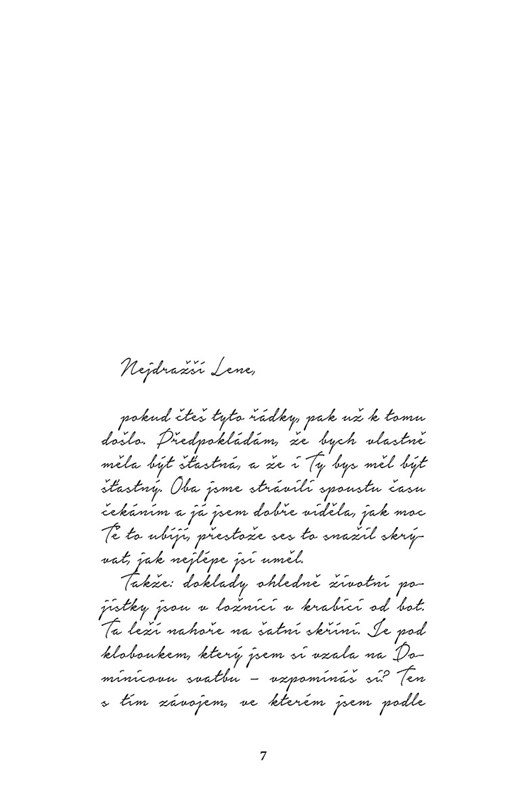 Nejdražší Lene,
pokud čteš tyto řádky, pak už k tomu
došlo. Předpokládám, že bych vlastně
měla být šťastná, a že i Ty bys měl být
šťastný. Oba jsme strávili spoustu času
čekáním a já jsem dobře viděla, jak moc
Tě to ubíjí, přestože ses to snažil skrý-
vat, jak nejlépe jsi uměl.
Takže: doklady ohledně životní po-
jistky jsou v ložnici v krabici od bot.
Ta leží nahoře na šatní skříni. Je pod
kloboukem, který jsem si vzala na Do-
minicovu svatbu – vzpomínáš si? Ten
s tím závojem, ve kterém jsem podle
7